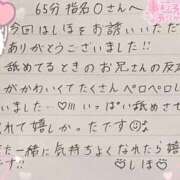 65分指名〇さんへ
今回はしほをお誘いいただ
ありがとうございました!!
舐めてるときのお兄さんの反
がかわいくてたくさんペロペロし
いました…♡!!!いっぱい舐めさせ
れて嬉しかったです☺
た一緒に気持ちよくなれたら嬉
です!!
しほ